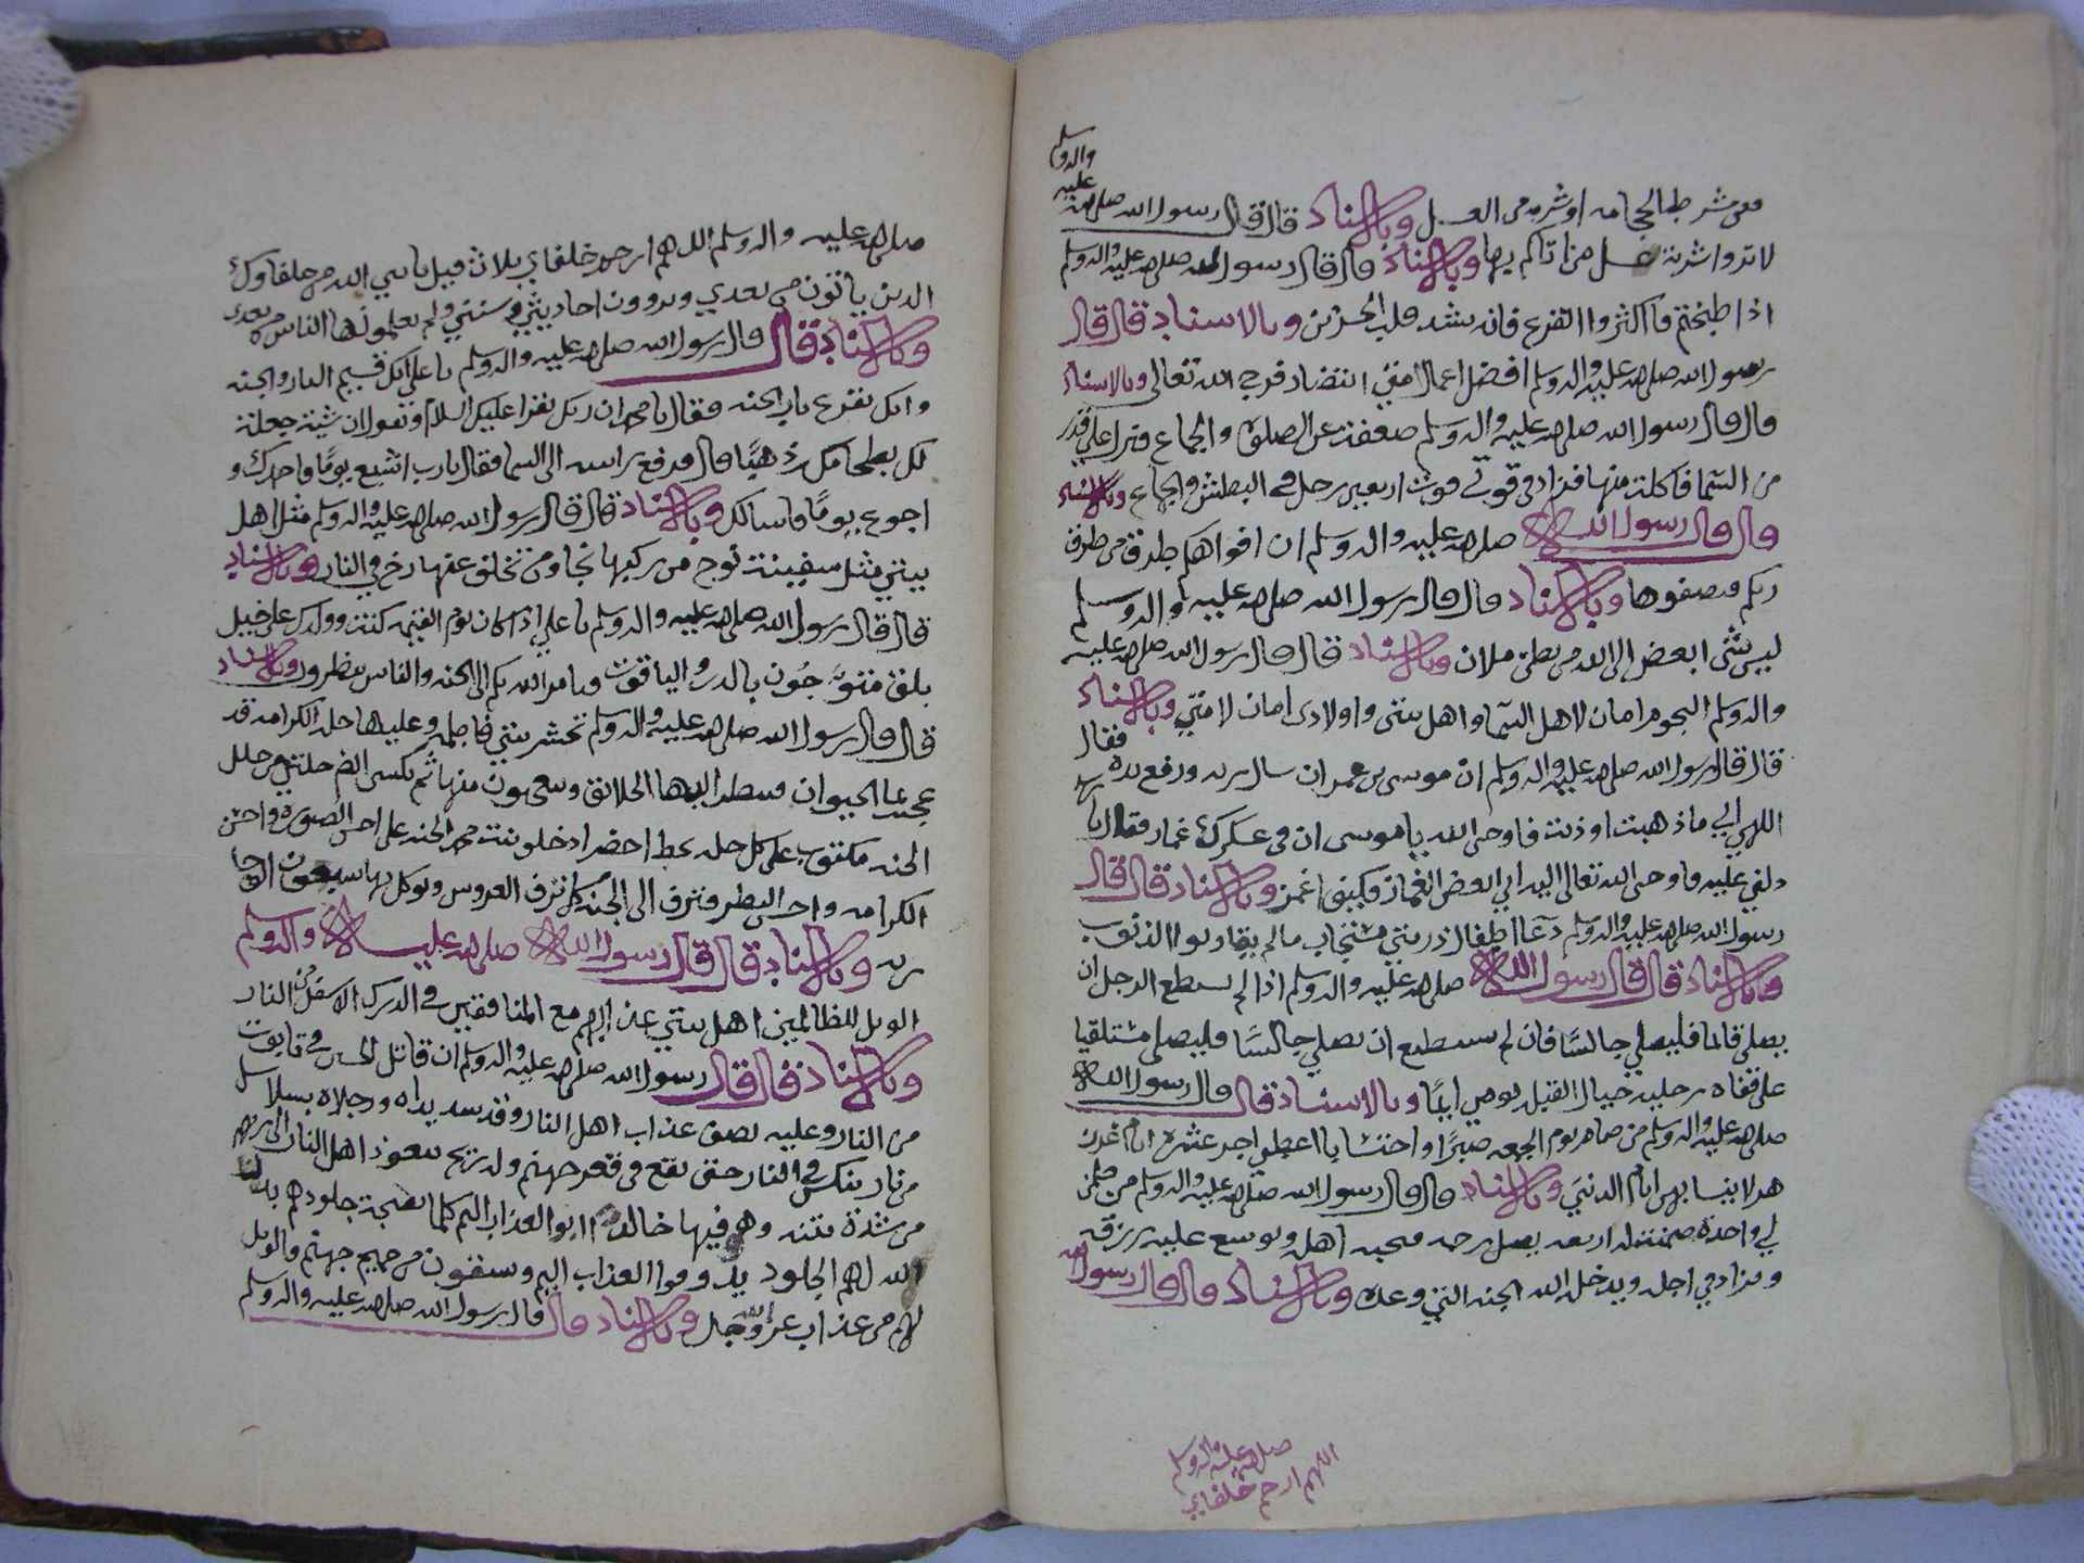 ففي شرطه الحجامه او شربه من العسل وبالاسناد قال قال رسول الله صلى الله
عليه واله وسلم
لا تردوا شربة عسل من اتاكم بها وبالاسناد قال قال رسول الله صلى الله عليه واله وسلم
اذا طبختم فاكثروا القرع فانه يشد قلب الحزين وبالاسناد قال قال
رسول الله صلى الله عليه واله وسلم افضل اعمال امتي انتضار فرج الله تعالى وبالاسناد
قال قال رسول الله صلى الله عليه واله وسلم ضعفت عن الصلوة والجماع فنزل علي قدر
من السما فاكلت منها فزاد في قوتي قوت اربعين رجل في البطش والجماع وبالاسناد
قال قال رسول الله صلى الله عليه واله وسلم ان افواهكم طرق من طرق
ربكم فنضفوها وبالاسناد قال قال رسول الله صلى الله عليه واله وسلم
ليس شى ابغض الى الله من بطن ملان وبالاسناد قال قال رسول الله صلى الله عليه
واله وسلم النجوم امان لاهل السما واهل بيتي واولادي امان لامتي وبالاسناد
قال قال رسول الله صلى الله عليه واله وسلم ان موسى بن عمران سال ربه ورفع يده فقال
اللهي اين ما ذهبت اوذيت فاوحى الله يا موسى ان في عسكرك غماز فقال يا رب
دلني عليه فاوحى الله تعالى اليه اني ابغض الغماز فكيف اغمز وبالاسناد قال قال
رسول الله صلى الله عليه واله وسلم دعا اطفال ذريتي مستجاب ما لم يقاربوا الذنوب
وبالاسناد قال قال رسول الله صلى الله عليه واله وسلم اذا لم يسطع الرجل ان
يصلي قائما فليصلي جالسًا فان لم يستطيع ان يصلي جالسًا فليصلي مستلقيا
على قفاه رجليه حيال القبله يومي ايمًا وبالاسناد قال قال رسول الله
صلى الله عليه واله وسلم من صام يوم الجمعه صبرًا واحتسابا اعطي اجر عشرة ايام
لا يشابهن ايام الدنيى وبالاسناد قال قال رسول الله صلى الله عليه واله وسلم من ضمن
لي واحدة ضمنت له اربعه يصل رحمه فيحبه اهله ويوسع عليه رزقه
ويزاد في اجله ويدخله الله الجنه التي وعده وبالاسناد قال قال رسول الله
صلى الله عليه واله وسلم
اللهم ارحم خلفاي
صلى الله عليه واله وسلم اللهم ارحم خلفاي ثلاث قيل يا نبي الله من خلفاوك
الذين ياتون من بعدي ويروون احاديثي وسنتي ويعلمونها الناس من بعدي
وبالاسناد قال قال رسول الله صلى الله عليه واله وسلم يا علي انك قسيم النار والجنه
وانك تقرع باب الجنه فقال يا محمد ان ربك يقرا عليك السلام ويقول ان شيت جعلت
لك بطحا مكه ذهبًا قال فرفع راسه الى السما فقال يا رب اشبع يومًا واحمدك و
اجوع يومًا واسالك وبالاسناد قال قال رسول الله صلى الله عليه واله وسلم مثل اهل
بيتي مثل سفينة نوح من ركبها نجا ومن تخلف عنها زخ في النار وبالاسناد
قال قال رسول الله صلى الله عليه واله وسلم يا علي اذا كان يوم القيمه كنت وولدك على خيل
بلق متوَّجون بالدر والياقوت ويامر الله بكم الى الجنه والناس ينظرون وبالاسناد
قال قال رسول الله صلى الله عليه واله وسلم تحشر بنتي فاطمه وعليها حلة الكرامه قد
عجنت بما الحيوان فينظر اليها الخلائق ويتعجبون منها ثم تكسى الف حلتين من حلل
الجنه مكتوب على كل حله بخط اخضر ادخلو بنت محمد الجنه على احسن الصورة واحسن
الكرامه واحسن النظر فتزف الى الجنه كما تزف العروس ويوكل بها سبعون الف جا
ريه وبالاسناد قال قال رسول الله صلى الله عليه واله وسلم
الويل للظالمين اهل بيتي عذابهم مع المنافقين في الدرك الاسفل من النار
وبالاسناد قال قال رسول الله صلى الله عليه واله وسلم ان قاتل الحسين في تابوت
من النار وعليه نصف عذاب اهل النار وقد شد يداه ورجلاه بسلاسل
من نار ينكس في النار حتى يقع في قعر جهنم وله ريح يتعوذ اهل النار الى ربهم
من شدة نتنه وهو فيها خالد العذاب اليم كلما نضجة جلودهم بدلنا
الله لهم الجلود يذوقوا العذاب اليم ويسقون من حميم جهنم والويل
لهم من عذاب الله عز وجل وبالاسناد قال قال رسول الله صلى الله عليه واله وسلم